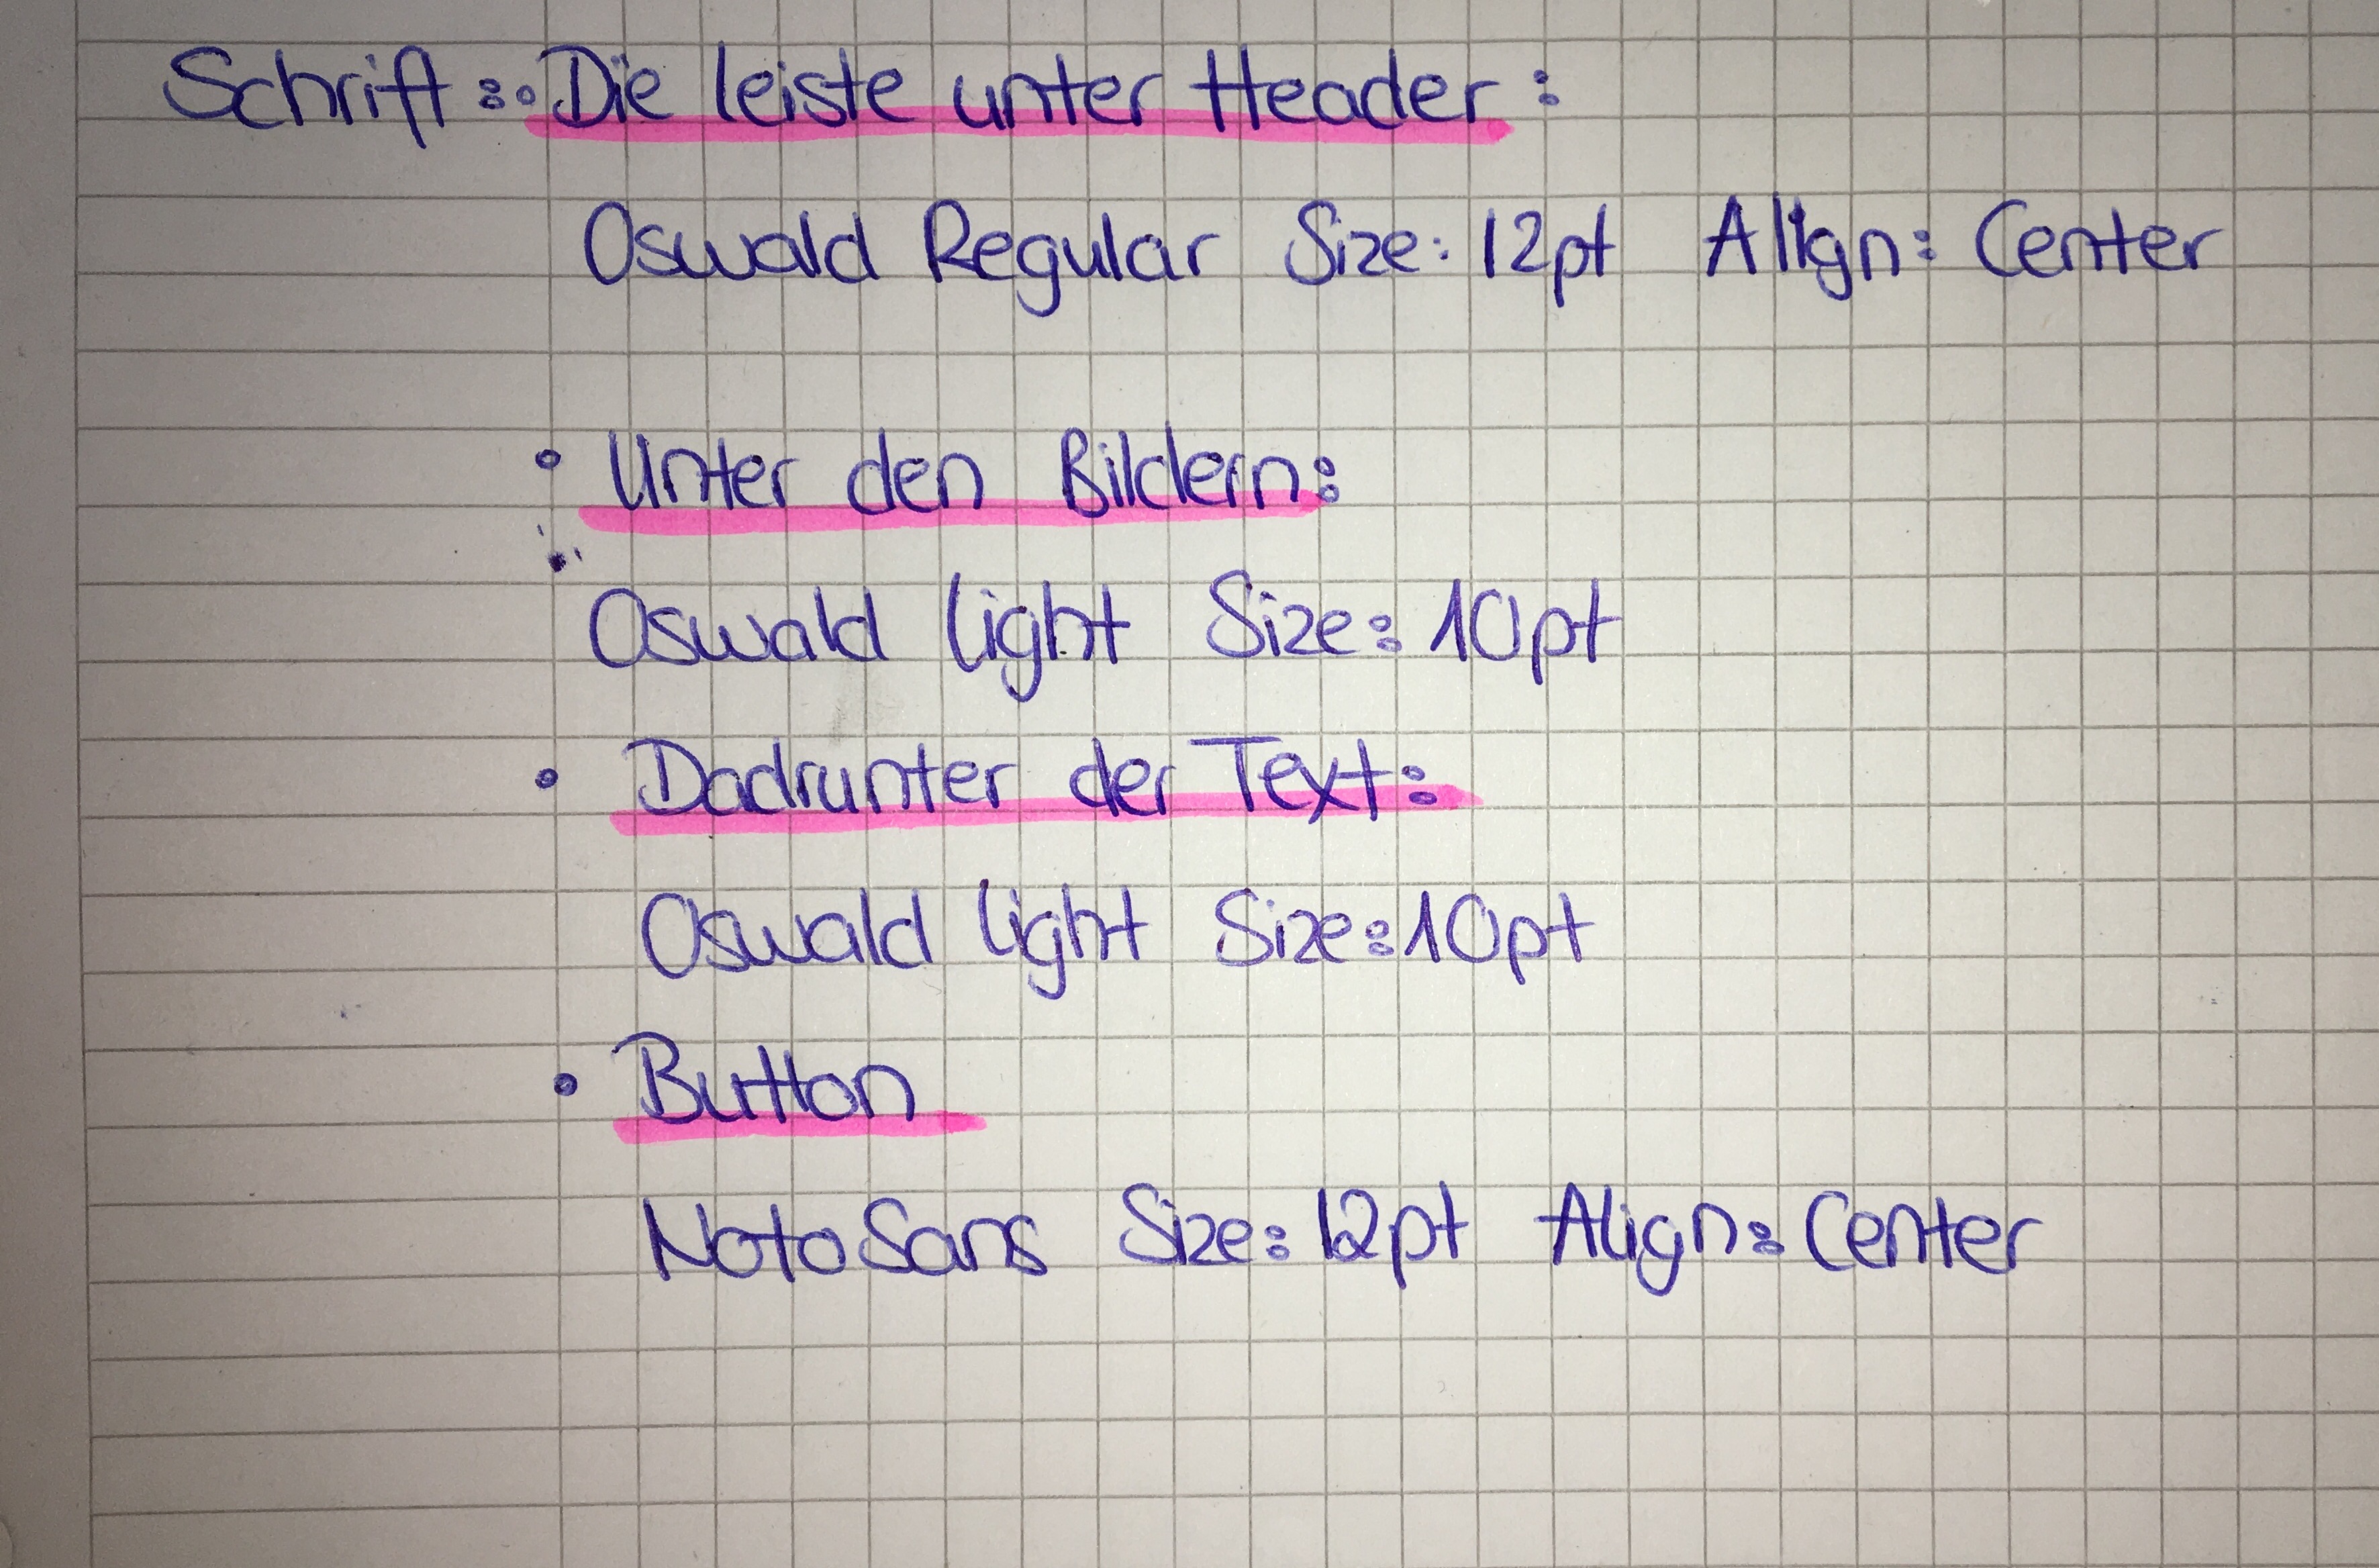 Schrift: • Die leiste unter Header:
Oswald Regular Size: 12pt Align: Center
• Unter den Bildern:
Oswald light Size: 10pt
• Dadrunter der Text:
Oswald light Size: 10pt
• Button
Noto Sans Size: 12pt Align: Center